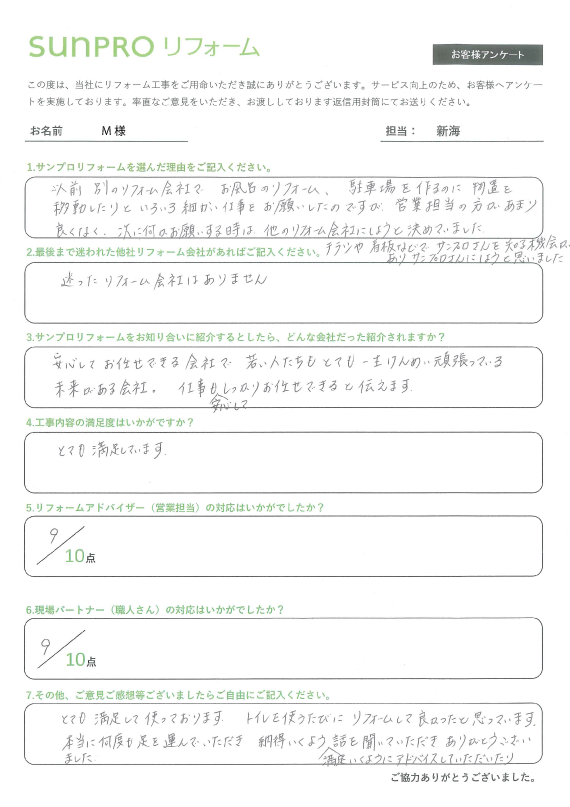 SUNPRO リフォーム
お客様アンケート
この度は、当社にリフォーム工事をご用命いただき誠にありがとうございます。サービス向上のため、お客様へアンケー
トを実施しております。率直なご意見をいただき、お渡ししております返信用封筒にてお送りください。
お名前 M 様 担当： 新海
1.サンプロリフォームを選んだ理由をご記入ください。
以前 別のリフォーム会社で お風呂のリフォーム、 駐車場を作るのに 物置を
移動したりと いろいろ細かい仕事をお願いしたのですが 営業担当の方があまり
良くなく、次に何かお願いする時は 他のリフォーム会社にしようと決めていました
チラシや 看板などで サンプロさんを知る機会が
あり サンプロさんにしようと思いました
2.最後まで迷われた他社リフォーム会社があればご記入ください。
迷った リフォーム会社はありません
3.サンプロリフォームをお知り合いに紹介するとしたら、どんな会社だった紹介されますか？
安心して お任せできる会社で 若い人たちもとても 一生けんめい頑張っている
未来がある会社。 仕事もしっかりお任せできると伝えます。
安心して
4.工事内容の満足度はいかがですか？
とても 満足しています。
5.リフォームアドバイザー（営業担当）の対応はいかがでしたか？
9/10点
6.現場パートナー（職人さん）の対応はいかがでしたか？
9/10点
7.その他、ご意見ご感想等ございましたらご自由にご記入ください。
とても 満足して使っております。 トイレを使うたびに リフォームして良かったと思っています。
本当に何度も足を運んでいただき 納得いくよう 話を聞いていただき ありがとうござい
ました 満足いくようにアドバイスしていただいたり
ご協力ありがとうございました。